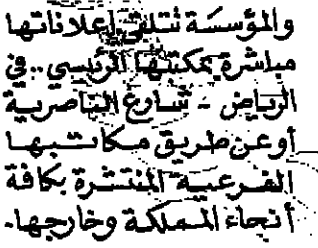 والمؤسسة تتلقى إعلاناتها
مباشرة بمكتبها الرئيسي .. في
الرياض - شارع الناصرية
أو عن طريق مكاتبها
الفرعية المنتشرة بكافة
أنحاء المملكة وخارجها.